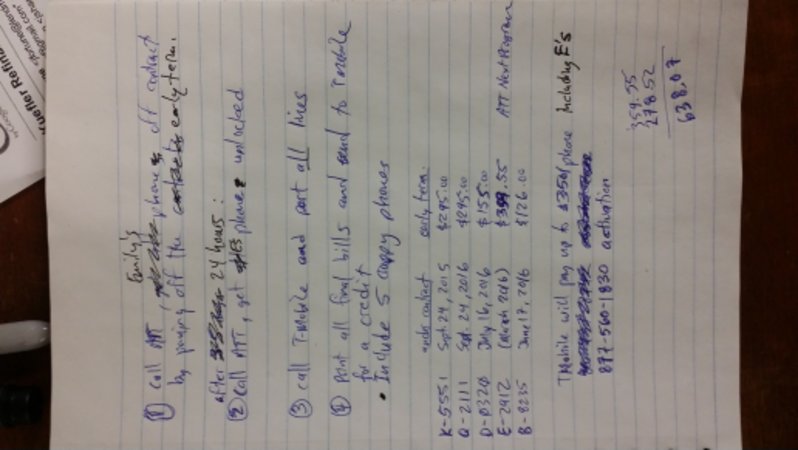 Family's
① Call ATT, phones off contract
by paying off the early term.
after 24 hours:
② Call ATT, get phones unlocked
③ call T-Mobile and port all lines
④ Print all final bills and send to Tmobile
for a credit
• Include 5 crappy phones
under contract early term.
K-5551 Sept. 24, 2015 $295.00
Q-2111 Sept. 24, 2016 $295.00
D-0320 July 16, 2016 $155.00
E-2912 (March 2016) $359.55 ATT Next Program
B-8235 June 17, 2016 $126.00
TMobile will pay up to $350/phone Including E's
877-560-1830 activation
359.55
278.52
638.07
Kuefler